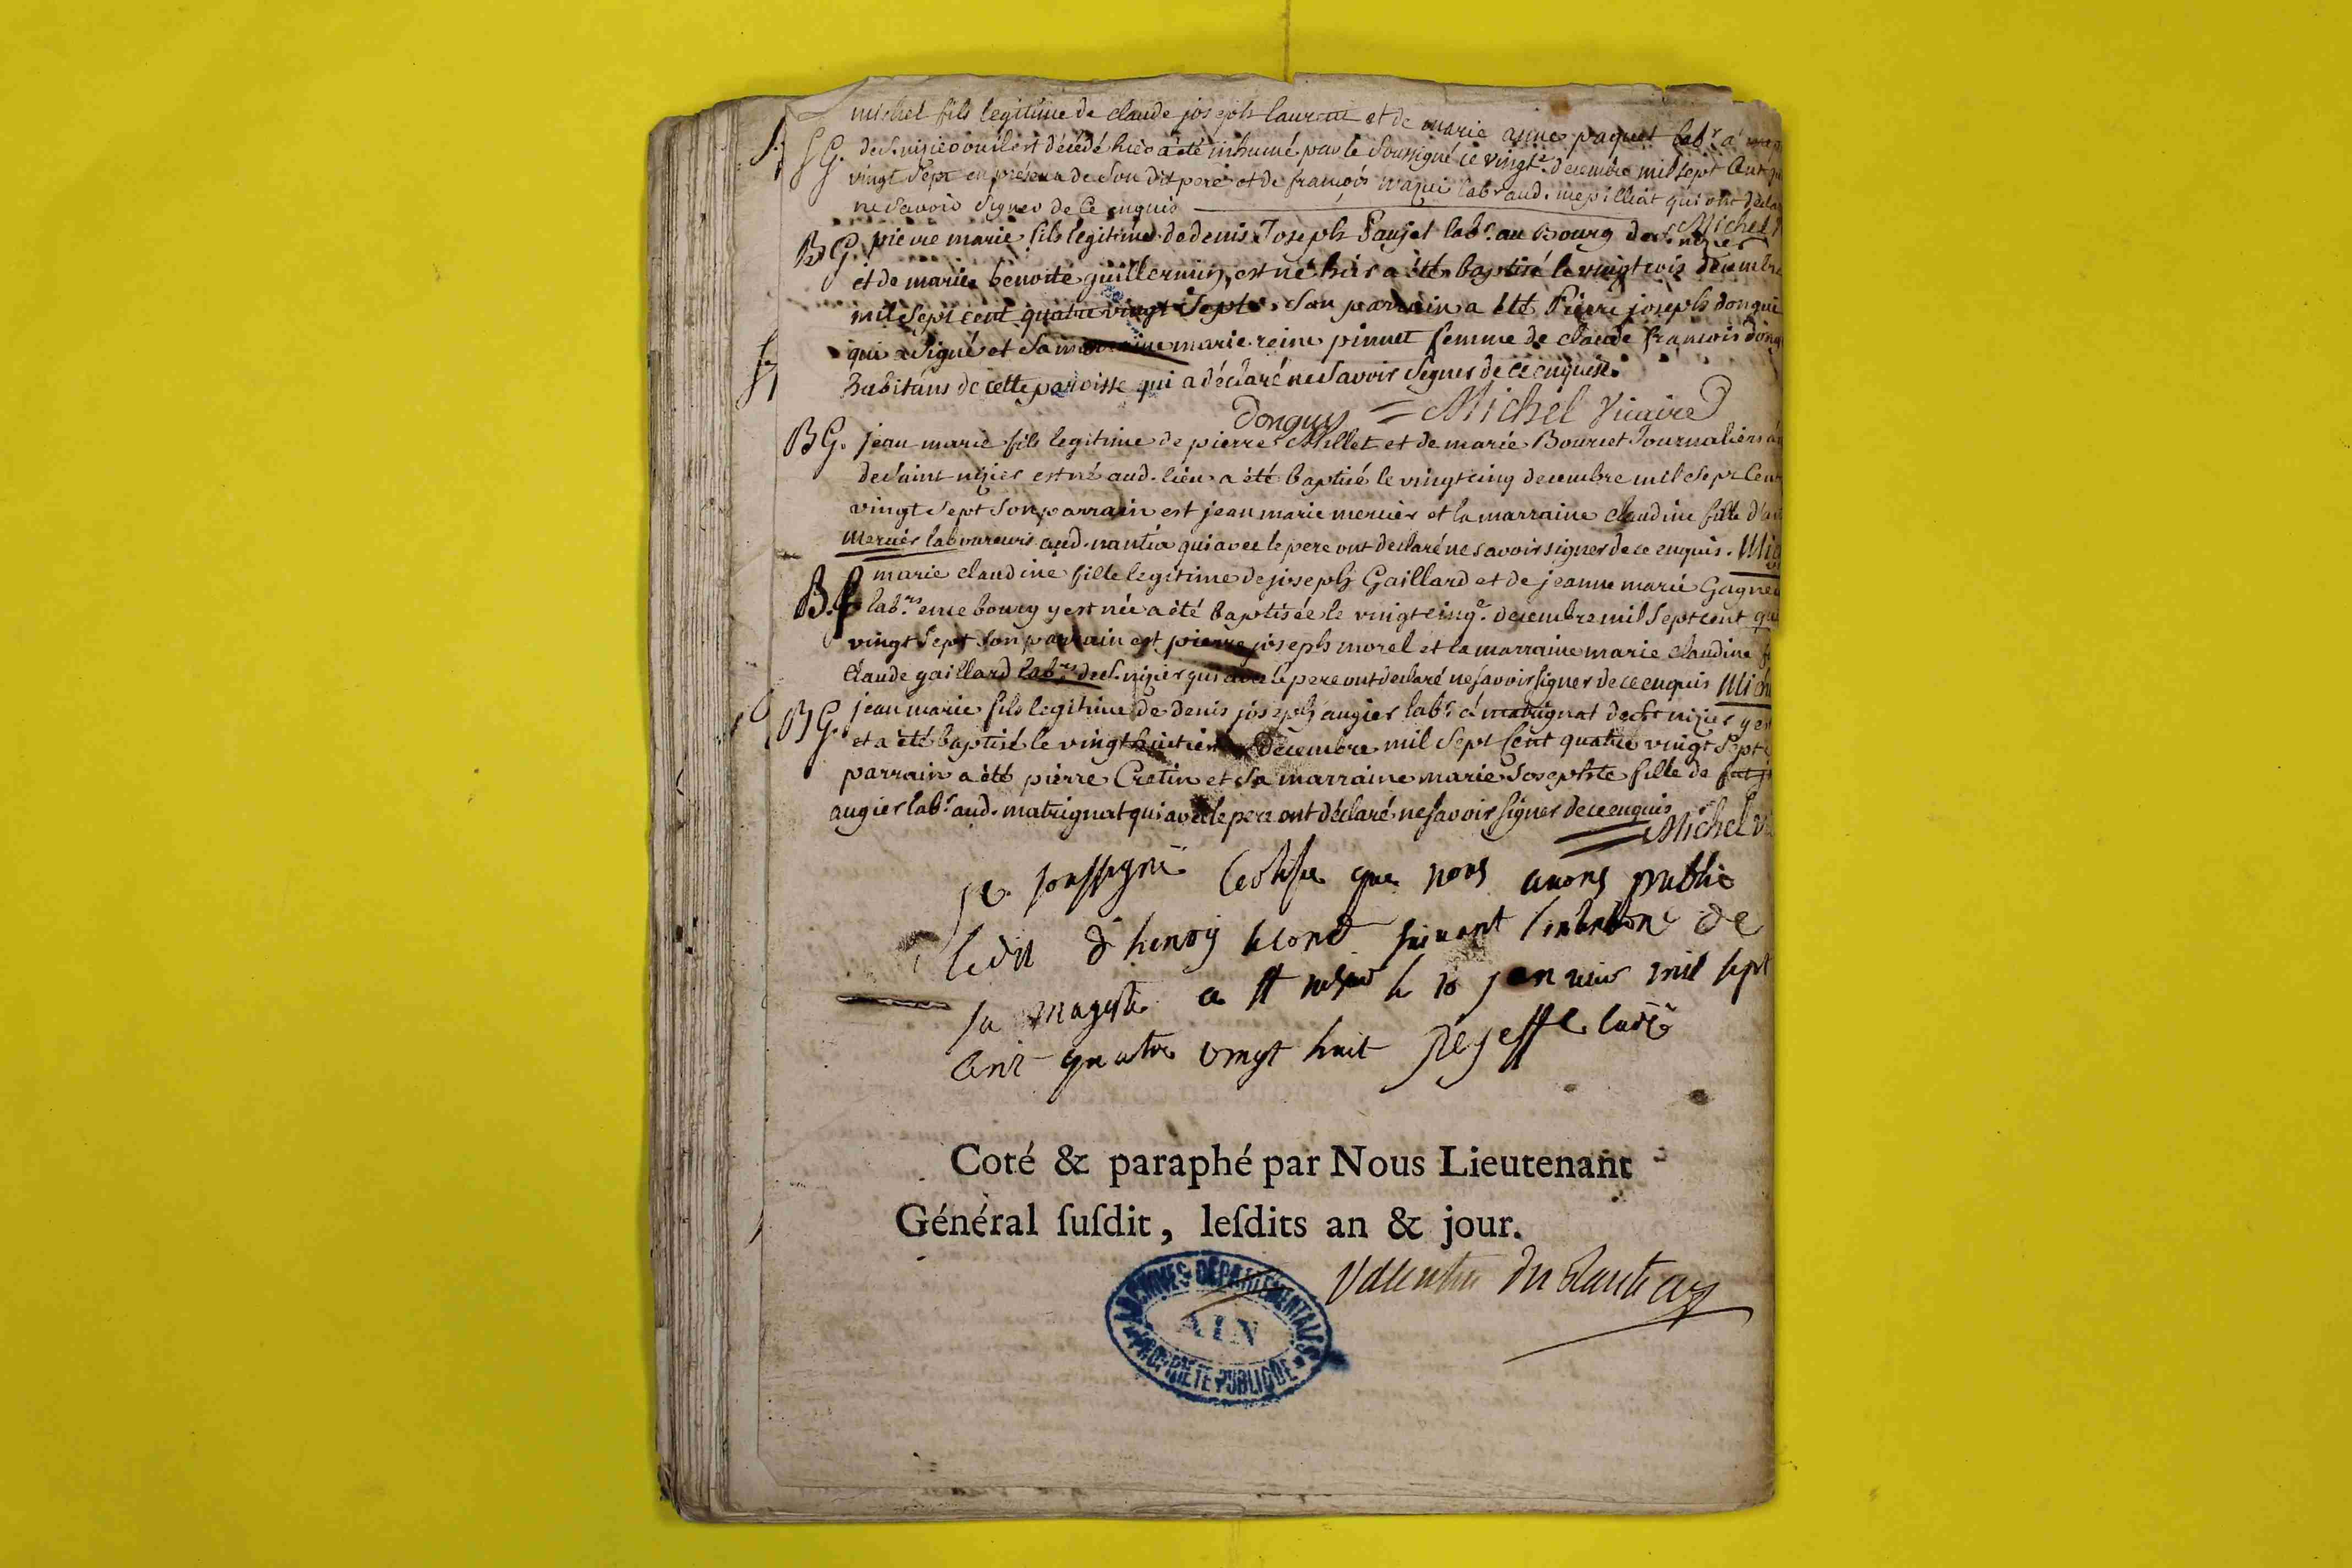 michel fils legitime de claude joseph laurent et de marie anne paquet labr. à
SG. de St. nizier ou il est décédé hier a été inhumé par le Soussigné ce vingte. décembre mil sept Cent
vingt Sept en présence de Son dit pere et de françois labr aud. mepilliat qui ont
ne Savoir Signer de Ce enquis Michel
BG. pierre marie fils legitime de denis Joseph Paujet labr. au Bourg de St nizier
et de marie benoite guillermin, est né hier a été baptisé le vingt trois décembre
mil Sept cent quatre vingt Sept. Son parrain a été Pierre joseph
qui a Signé et Sa marraine marie reine pinnet femme de claude françois
habitans de cette paroisse qui a déclaré ne Savoir Signer de ce enquise.
Donguy = Michel Vicaire
BG. jean marie fils legitime de pierre Millet et de marie Bourcet Journaliers
de Saint nizier est né aud. lieu a été baptisé le vingt cinq decembre mil Sept Cent
vingt Sept Son parrain est jean marie mercier et la marraine claudine fille
mercier laboureurs aud. nantia qui avec le pere ont declaré ne savoir signer de ce enquis.
B.G marie claudine fille legitime de joseph Gaillard et de jeanne marie
labrs. en ce bourg y est née a été baptisée le vingt cinqe. decembre mil Sept cent
vingt Sept Son parrain est pierre joseph morel et la marraine marie claudine
Claude gaillard labrs de St. nizier qui avec le pere ont declaré ne savoir signer de ce enquis
BG. jean marie fils legitime de denis joseph augier labr. à matrignat de St nizier y
et a été baptisé le vingt huitieme Décembre mil Sept Cent quatre vingt Sept
parrain a été pierre Cretin et Sa marraine marie Josephte fille de
augier labr aud. matrignat qui avec le pere ont déclaré ne savoir signer de ce enquis
Michel
je soussigné Certifie que nous avons publié
l'edit d'henry second suivant l'intention de
sa magesté a St nisier le 10 janvier mil sept
cent quatre vingt huit curé
Coté & paraphé par Nous Lieutenant
Général ſuſdit, leſdits an & jour.
Valentin du
ARCHIVES DÉPARTEMENTALES
AIN
PROPRIÉTÉ PUBLIQUE